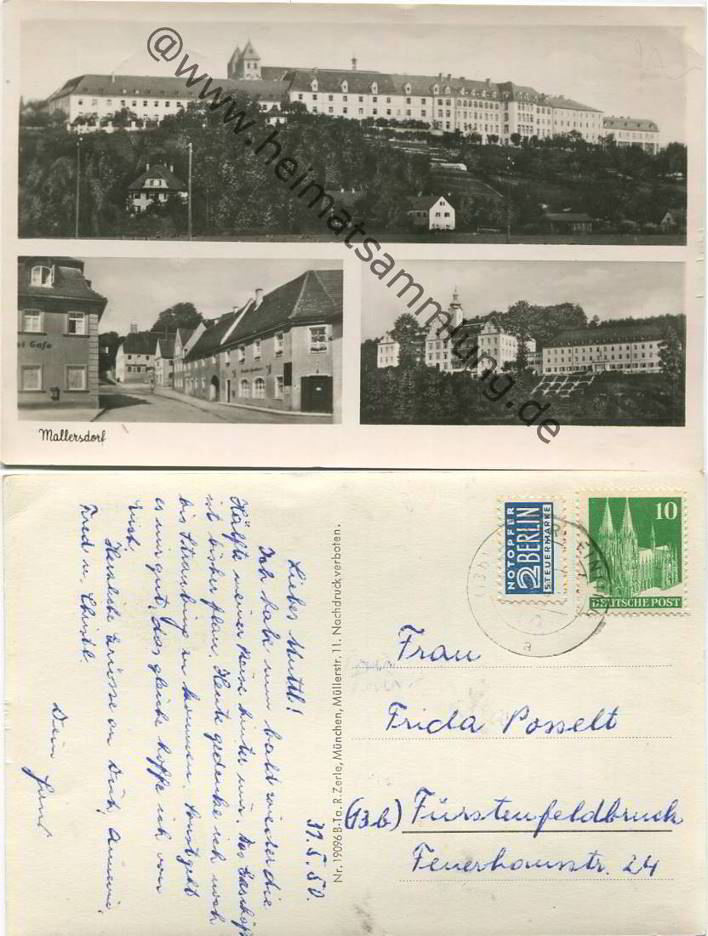 @www.heimatsammlung.de
Cafe
Mallersdorf
NOTOPFER
2 BERLIN
STEUERMARKE
10
DEUTSCHE POST
a
Frau
Frida Posselt
(13b) Fürstenfeldbruck
Feuerhausstr. 24
Nr. 19096 B-Ta. R. Zerle, München, Müllerstr. 11. Nachdruck verboten.
31.5.50.
Liebes Muttl!
Ich habe nun bald wieder die
Hälfte meiner Reise hinter mir. Das Geschäft
ist bisher flau. Heute gedenke ich noch
bis Straubing zu kommen. Sonst geht
es mir gut, das gleiche hoffe ich von
Euch.
Herzliche Grüsse an Dich,
Fred u. Christl.
Dein